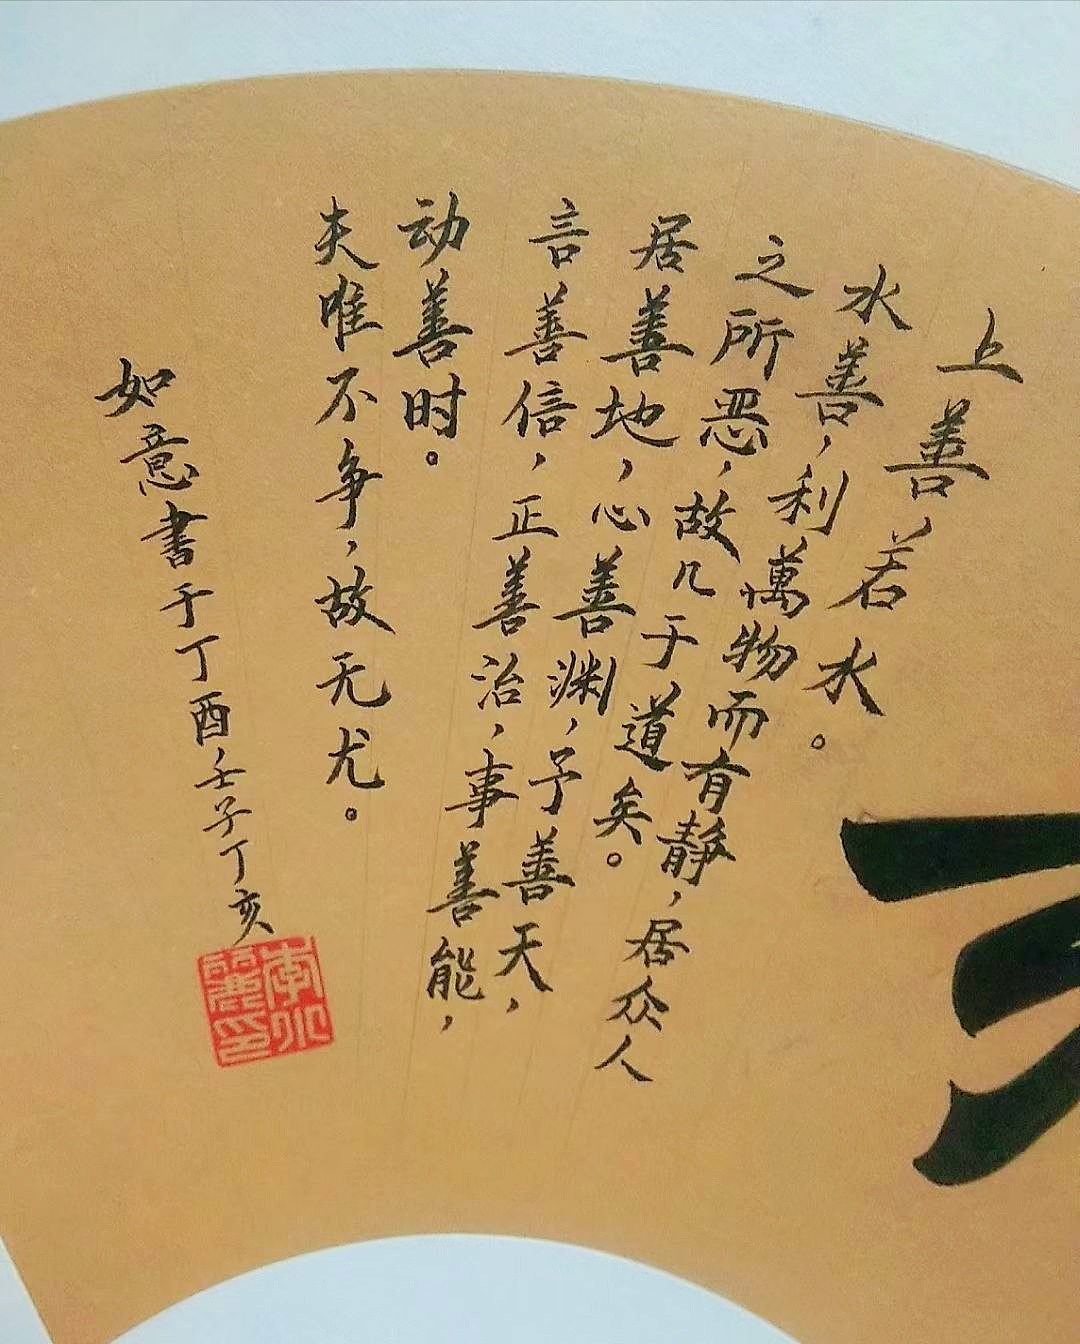 上善，若水。
水善，利萬物而有静，居众人
之所恶，故几于道矣。
居善地，心善渊，予善天，
言善信，正善治，事善能，
动善时。
夫唯不争，故无尤。
如意書于丁酉，壬子丁亥
李
麗印